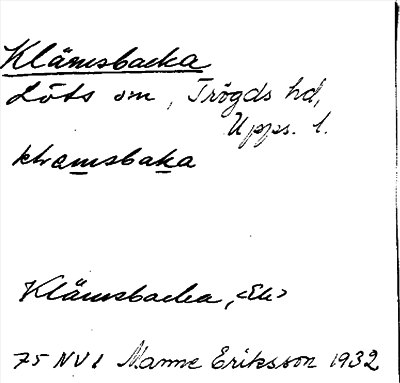 Klämsbacka
Löts sn, Trögds hd,
Upps. l.
klramsbaka
Klämsbacka, <Ek>
75 NV 1 Manne Eriksson 1932